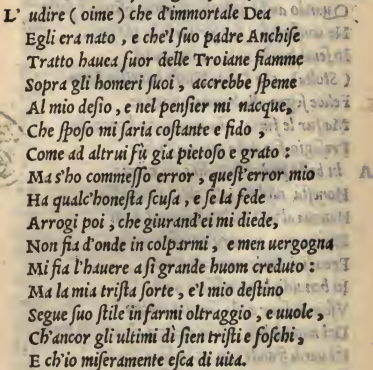 L' udire ( oime ) che d'immortale Dea
Egli era nato , e che'l ſuo padre Anchiſe
Tratto hauea fuor delle Troiane fiamme
Sopra gli homeri ſuoi , accrebbe ſpeme
Al mio deſio , e nel penſier mi nacque,
Che ſpoſo mi ſaria coſtante e fido ,
Come ad altrui fù gia pietoſo e grato :
Ma s'ho commeſſo error , queſt'error mio
Ha qualc'honeſta ſcuſa , e ſe la fede
Arrogi poi , che giurand'ei mi diede,
Non fia d'onde in colparmi , e men uergogna
Mi fia l'hauere a ſi grande huom creduto :
Ma la mia triſta ſorte , e'l mio deſtino
Segue ſuo ſtile in farmi oltraggio , e uuole ,
Ch'ancor gli ultimi dì ſien triſti e foſchi ,
E ch'io miſeramente eſca di uita.